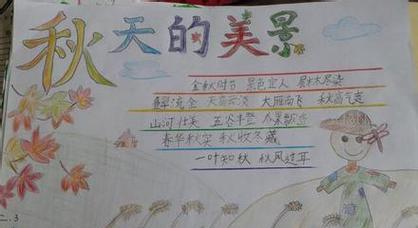 秋天的美景
金秋时节 景色宜人 层林尽染
天高云淡 大雁南飞 秋高气爽
山河壮美 五谷丰登 瓜果飘香
春华秋实 秋收冬藏
一叶知秋 秋风过耳
二.3